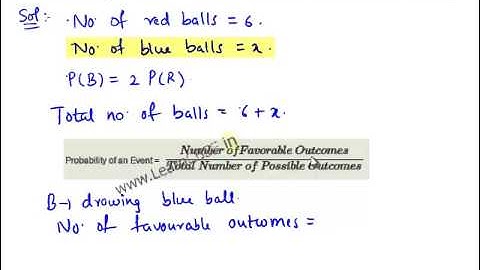 Sol:- No of red balls = 6.
No of blue balls = x.
P(B) = 2 P(R)
Total no of balls = 6 + x.
Probability of an Event = Number of Favorable Outcomes
Total Number of Possible Outcomes
B→ drawing blue ball.
No of favourable outcomes =